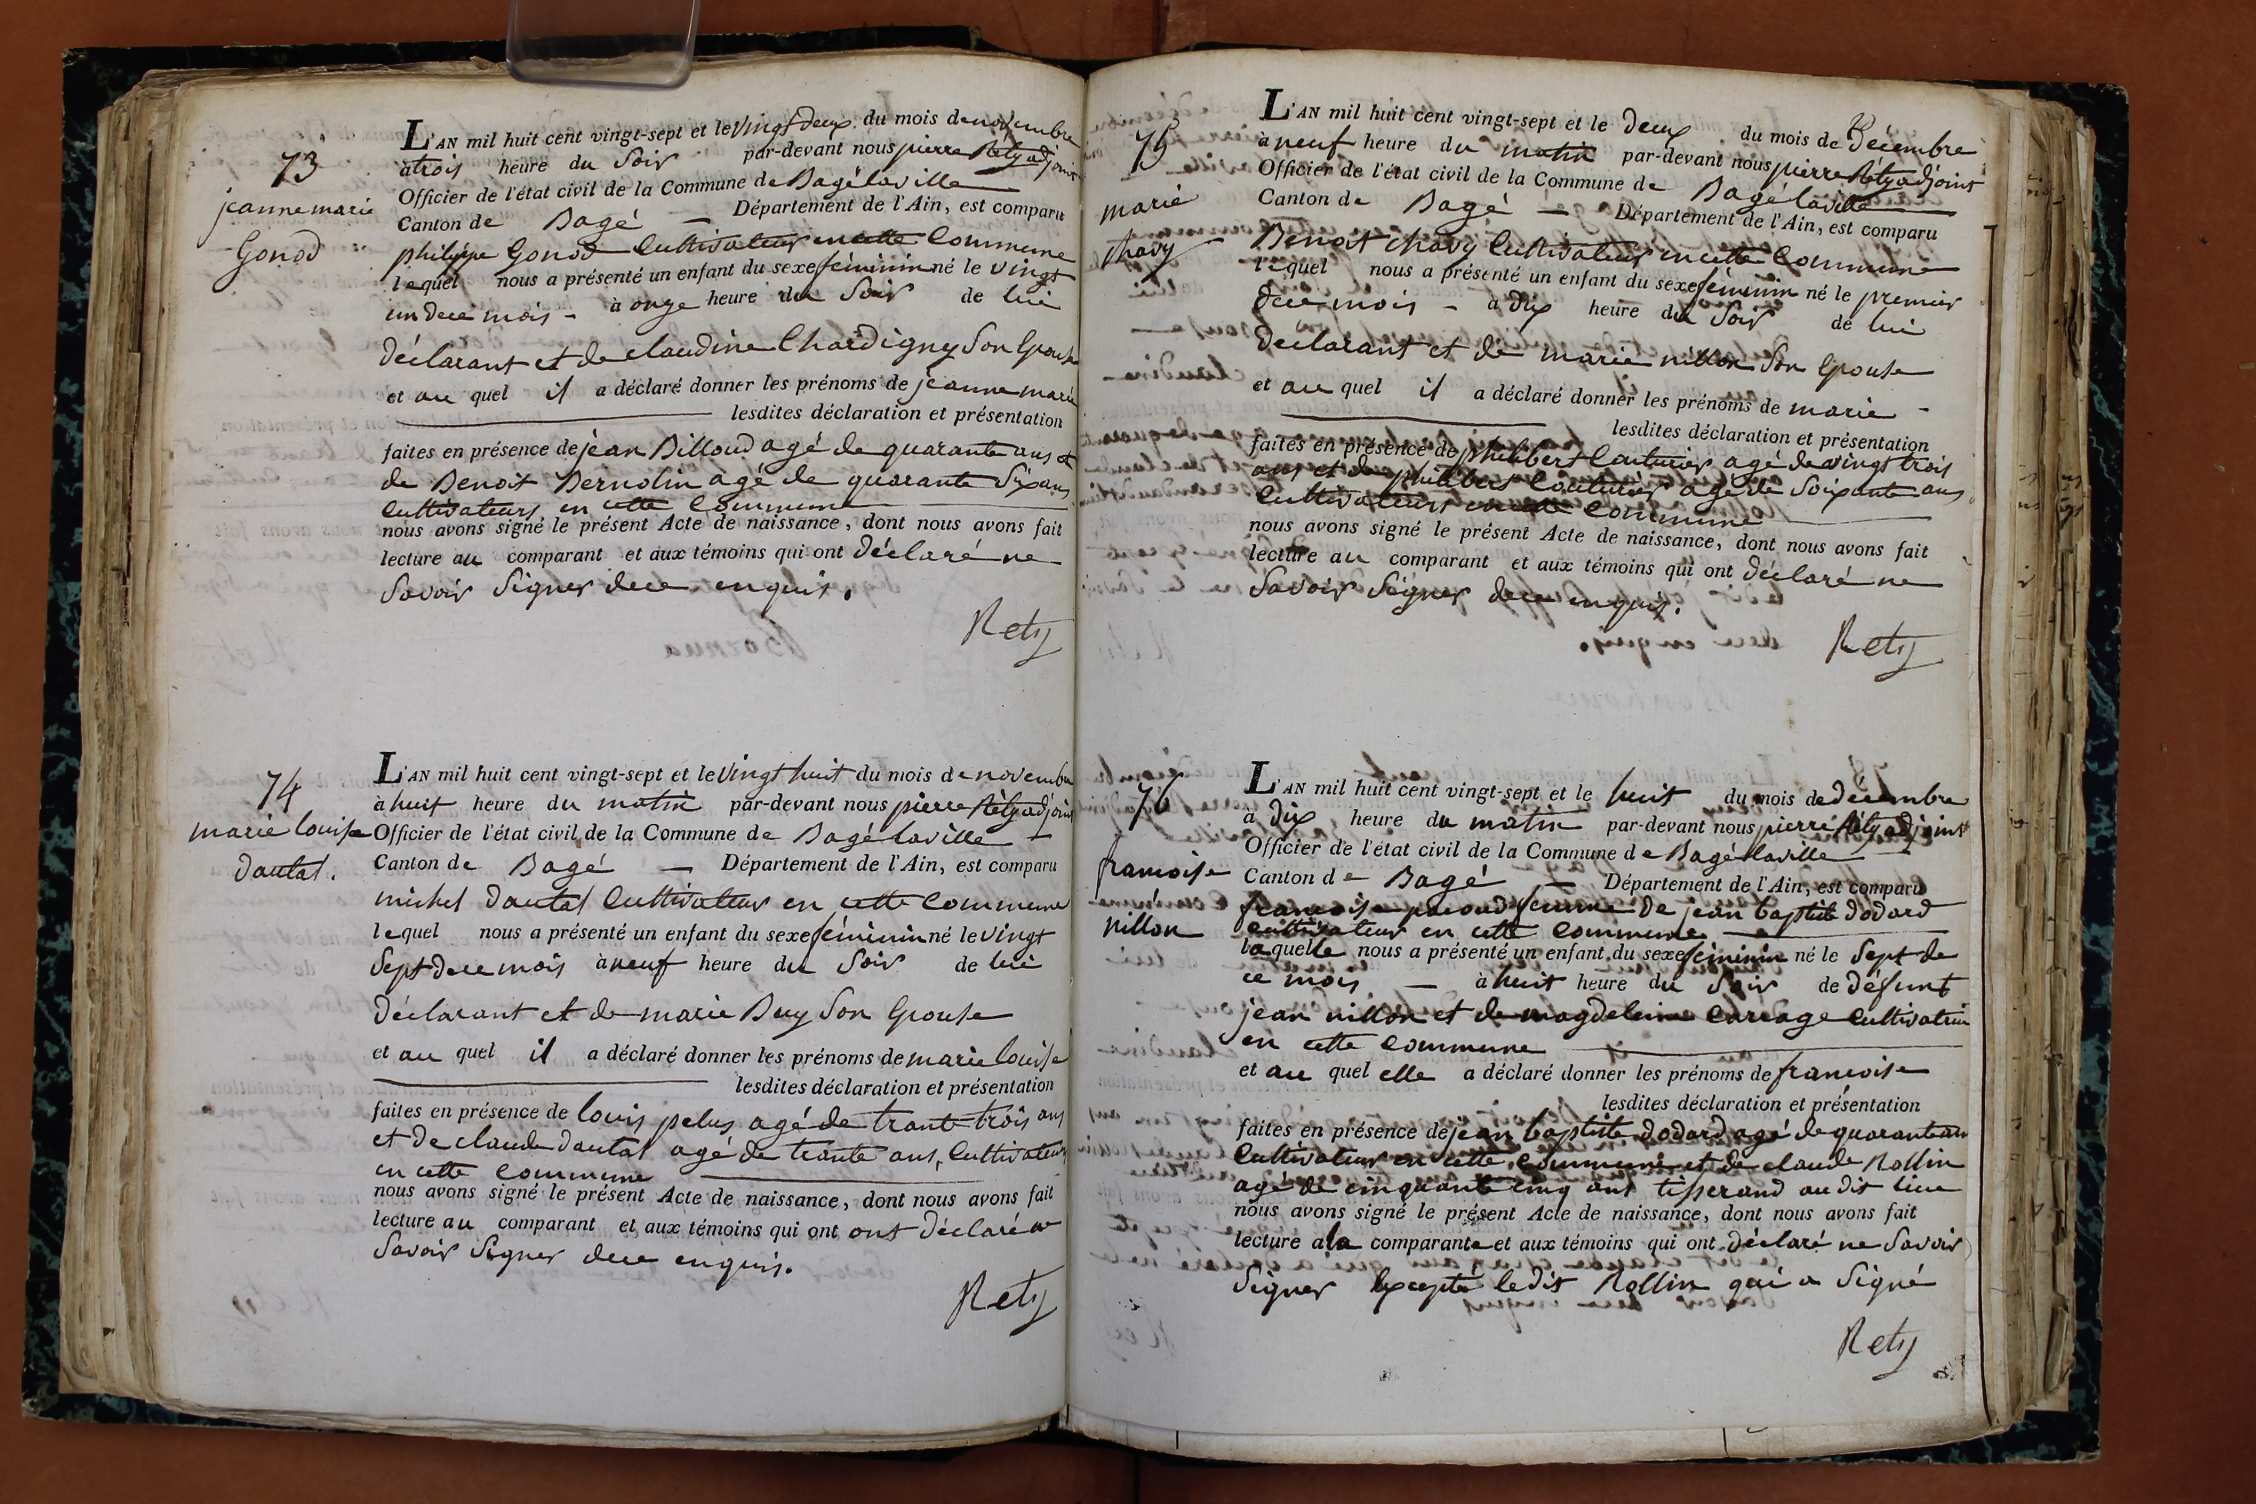 73
jeanne marie
Gonod
L'AN mil huit cent vingt-sept et le vingt deux du mois de novembre
à trois heure du Soir par-devant nous pierre Réty adjoint
Officier de l'état civil de la Commune de Bagé laville
Canton de Bagé — Département de l'Ain, est comparu
philippe Gonod Cultivateur en cette Commune
lequel nous a présenté un enfant du sexe féminin né le vingt
un de ce mois - à onze heure du Soir de lui
déclarant et de claudine Chardigny Son Epouse
et au quel il a déclaré donner les prénoms de jeanne marie
lesdites déclaration et présentation
faites en présence de jean Billoud agé de quarante ans et
de Benoit Bernolin agé de quarante Six ans
Cultivateurs en cette Commune
nous avons signé le présent Acte de naissance, dont nous avons fait
lecture au comparant et aux témoins qui ont déclaré ne
Savoir Signer de ce enquis.
Rety
74
marie louise
dautal.
L'AN mil huit cent vingt-sept et le vingt huit du mois de novembre
à huit heure du matin par-devant nous pierre Réty adjoint
Officier de l'état civil de la Commune de Bagé laville
Canton de Bagé — Département de l'Ain, est comparu
michel dautal Cultivateur en cette Commune
lequel nous a présenté un enfant du sexe féminin né le vingt
Sept de ce mois à neuf heure du Soir de lui
déclarant et de marie Buy Son Epouse
et au quel il a déclaré donner les prénoms de marie louise
lesdites déclaration et présentation
faites en présence de louis pelus agé de trante trois ans
et de claude dautal agé de trante ans, Cultivateurs
en cette Commune
nous avons signé le présent Acte de naissance, dont nous avons fait
lecture au comparant et aux témoins qui ont ont déclaré ne
Savoir Signer de ce enquis.
Rety
75
marie
Chavy
L'AN mil huit cent vingt-sept et le deux du mois de Décembre
à neuf heure du matin par-devant nous pierre Réty adjoint
Officier de l'état civil de la Commune de Bagé laville
Canton de Bagé — Département de l'Ain, est comparu
Benoit Chavy Cultivateur en cette Commune
lequel nous a présenté un enfant du sexe féminin né le premier
de ce mois - à dix heure du Soir de lui
déclarant et de marie nillon Son Epouse
et au quel il a déclaré donner les prénoms de marie -
lesdites déclaration et présentation
faites en présence de philibert Couturier agé de vingt trois
ans et de philibert Couturier agé de Soixante ans
Cultivateurs en cette Commune
nous avons signé le présent Acte de naissance, dont nous avons fait
lecture au comparant et aux témoins qui ont déclaré ne
Savoir Signer de ce enquis.
Rety
76
francoise
nillon
L'AN mil huit cent vingt-sept et le huit du mois de décembre
à dix heure du matin par-devant nous pierre Réty adjoint
Officier de l'état civil de la Commune de Bagé laville
Canton de Bagé — Département de l'Ain, est comparu
francoise pacoud femme de jean baptiste dodard
cultivateur en cette commune
laquelle nous a présenté un enfant du sexe féminin né le Sept de
ce mois — à huit heure du Soir de défunt
jean nillon et de magdeleine Carrage Cultivateur
en cette Commune
et au quel elle a déclaré donner les prénoms de francoise
lesdites déclaration et présentation
faites en présence de jean baptiste dodard agé de quarante ans
Cultivateur en cette Commune et de claude Rollin
agé de cinquante cinq ans tisserand au dit lieu
nous avons signé le présent Acte de naissance, dont nous avons fait
lecture à la comparante et aux témoins qui ont déclaré ne Savoir
Signer Excepté ledit Rollin qui a Signé
Rety